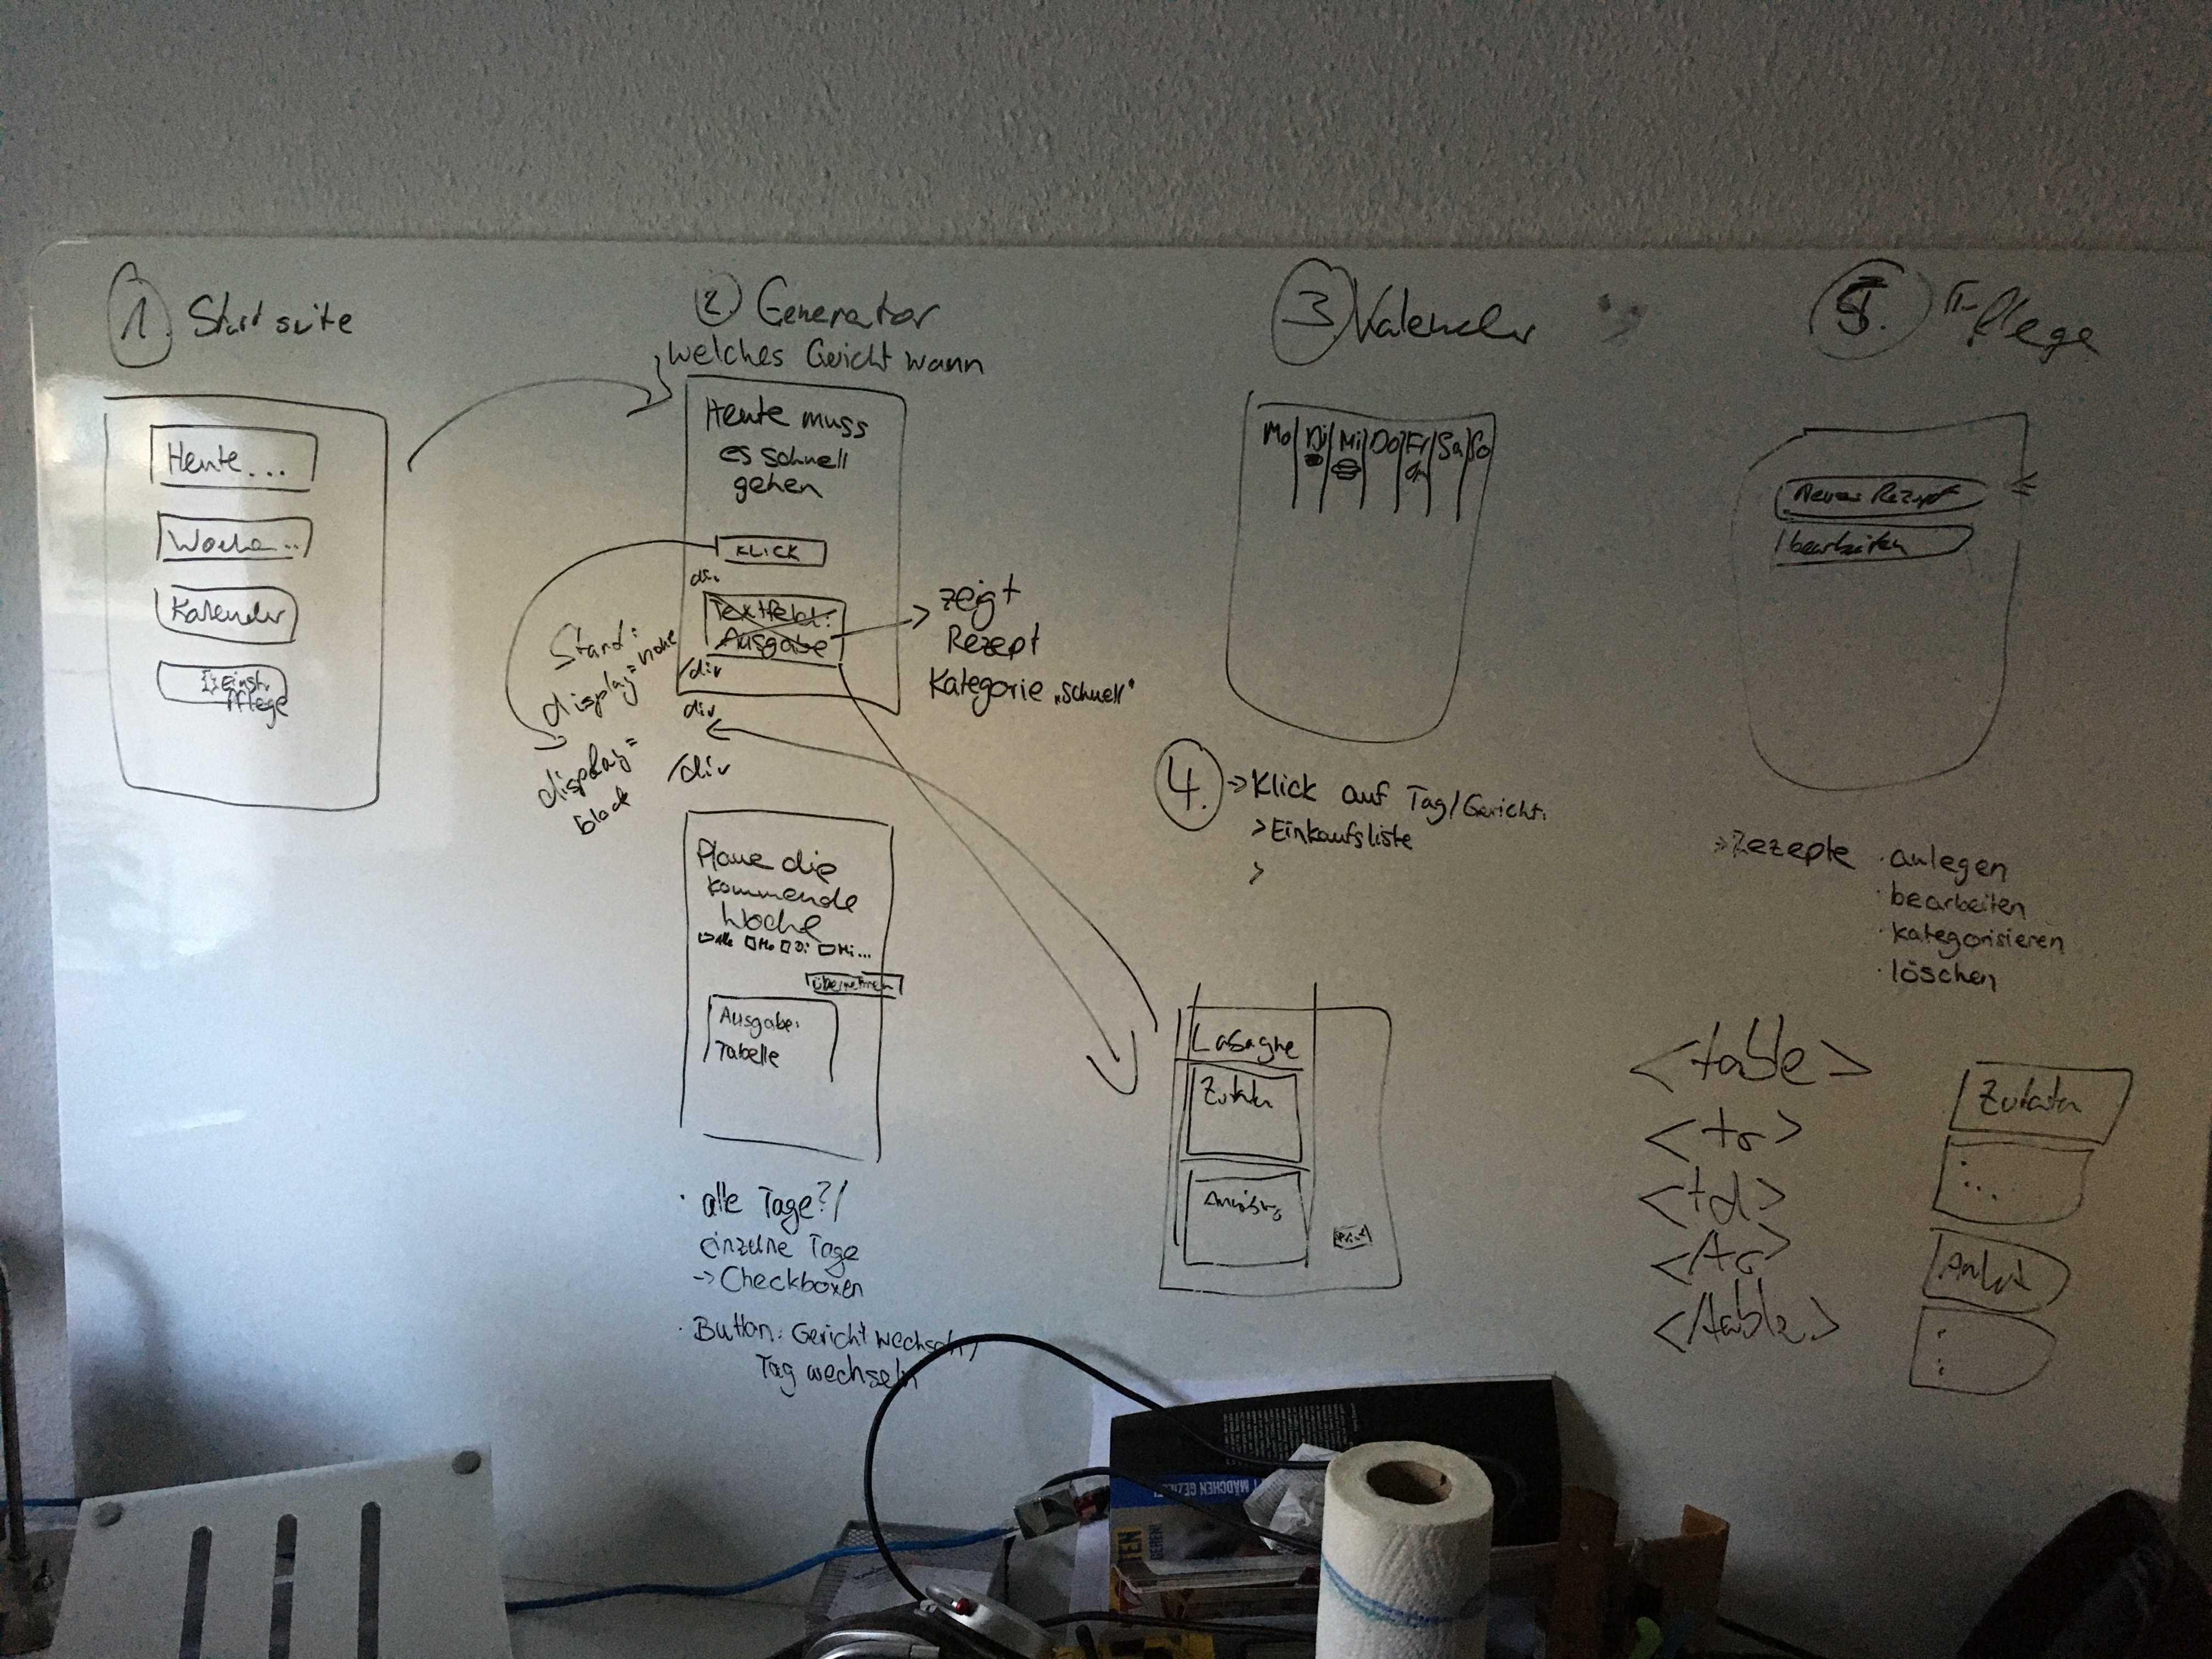 1. Startseite
Heute...
Woche...
Kalender
Einst.
Pflege
2. Generator
welches Gericht wann
Heute muss
es schnell
gehen
KLICK
div
Textfeld:
Ausgabe
/div
div
/div
zeigt
Rezept
Kategorie „schnell"
Stand:
display=none
display=
block
Plane die
kommende
Woche
Alle Mo Di Mi...
übernehmen
Ausgabe:
Tabelle
· alle Tage?/
einzelne Tage
-> Checkboxen
· Button: Gericht wechseln/
Tag wechseln
3 Kalender
Mo Di Mi Do Fr Sa So
4. -> Klick auf Tag/Gericht:
> Einkaufsliste
>
Lasagne
Zutaten
print
5. Pflege
Neues Rezept
bearbeiten
> Rezepte · anlegen
· bearbeiten
· kategorisieren
· löschen
<table>
<tr>
<td>
</table>
Zutaten
...
MÄDCHEN